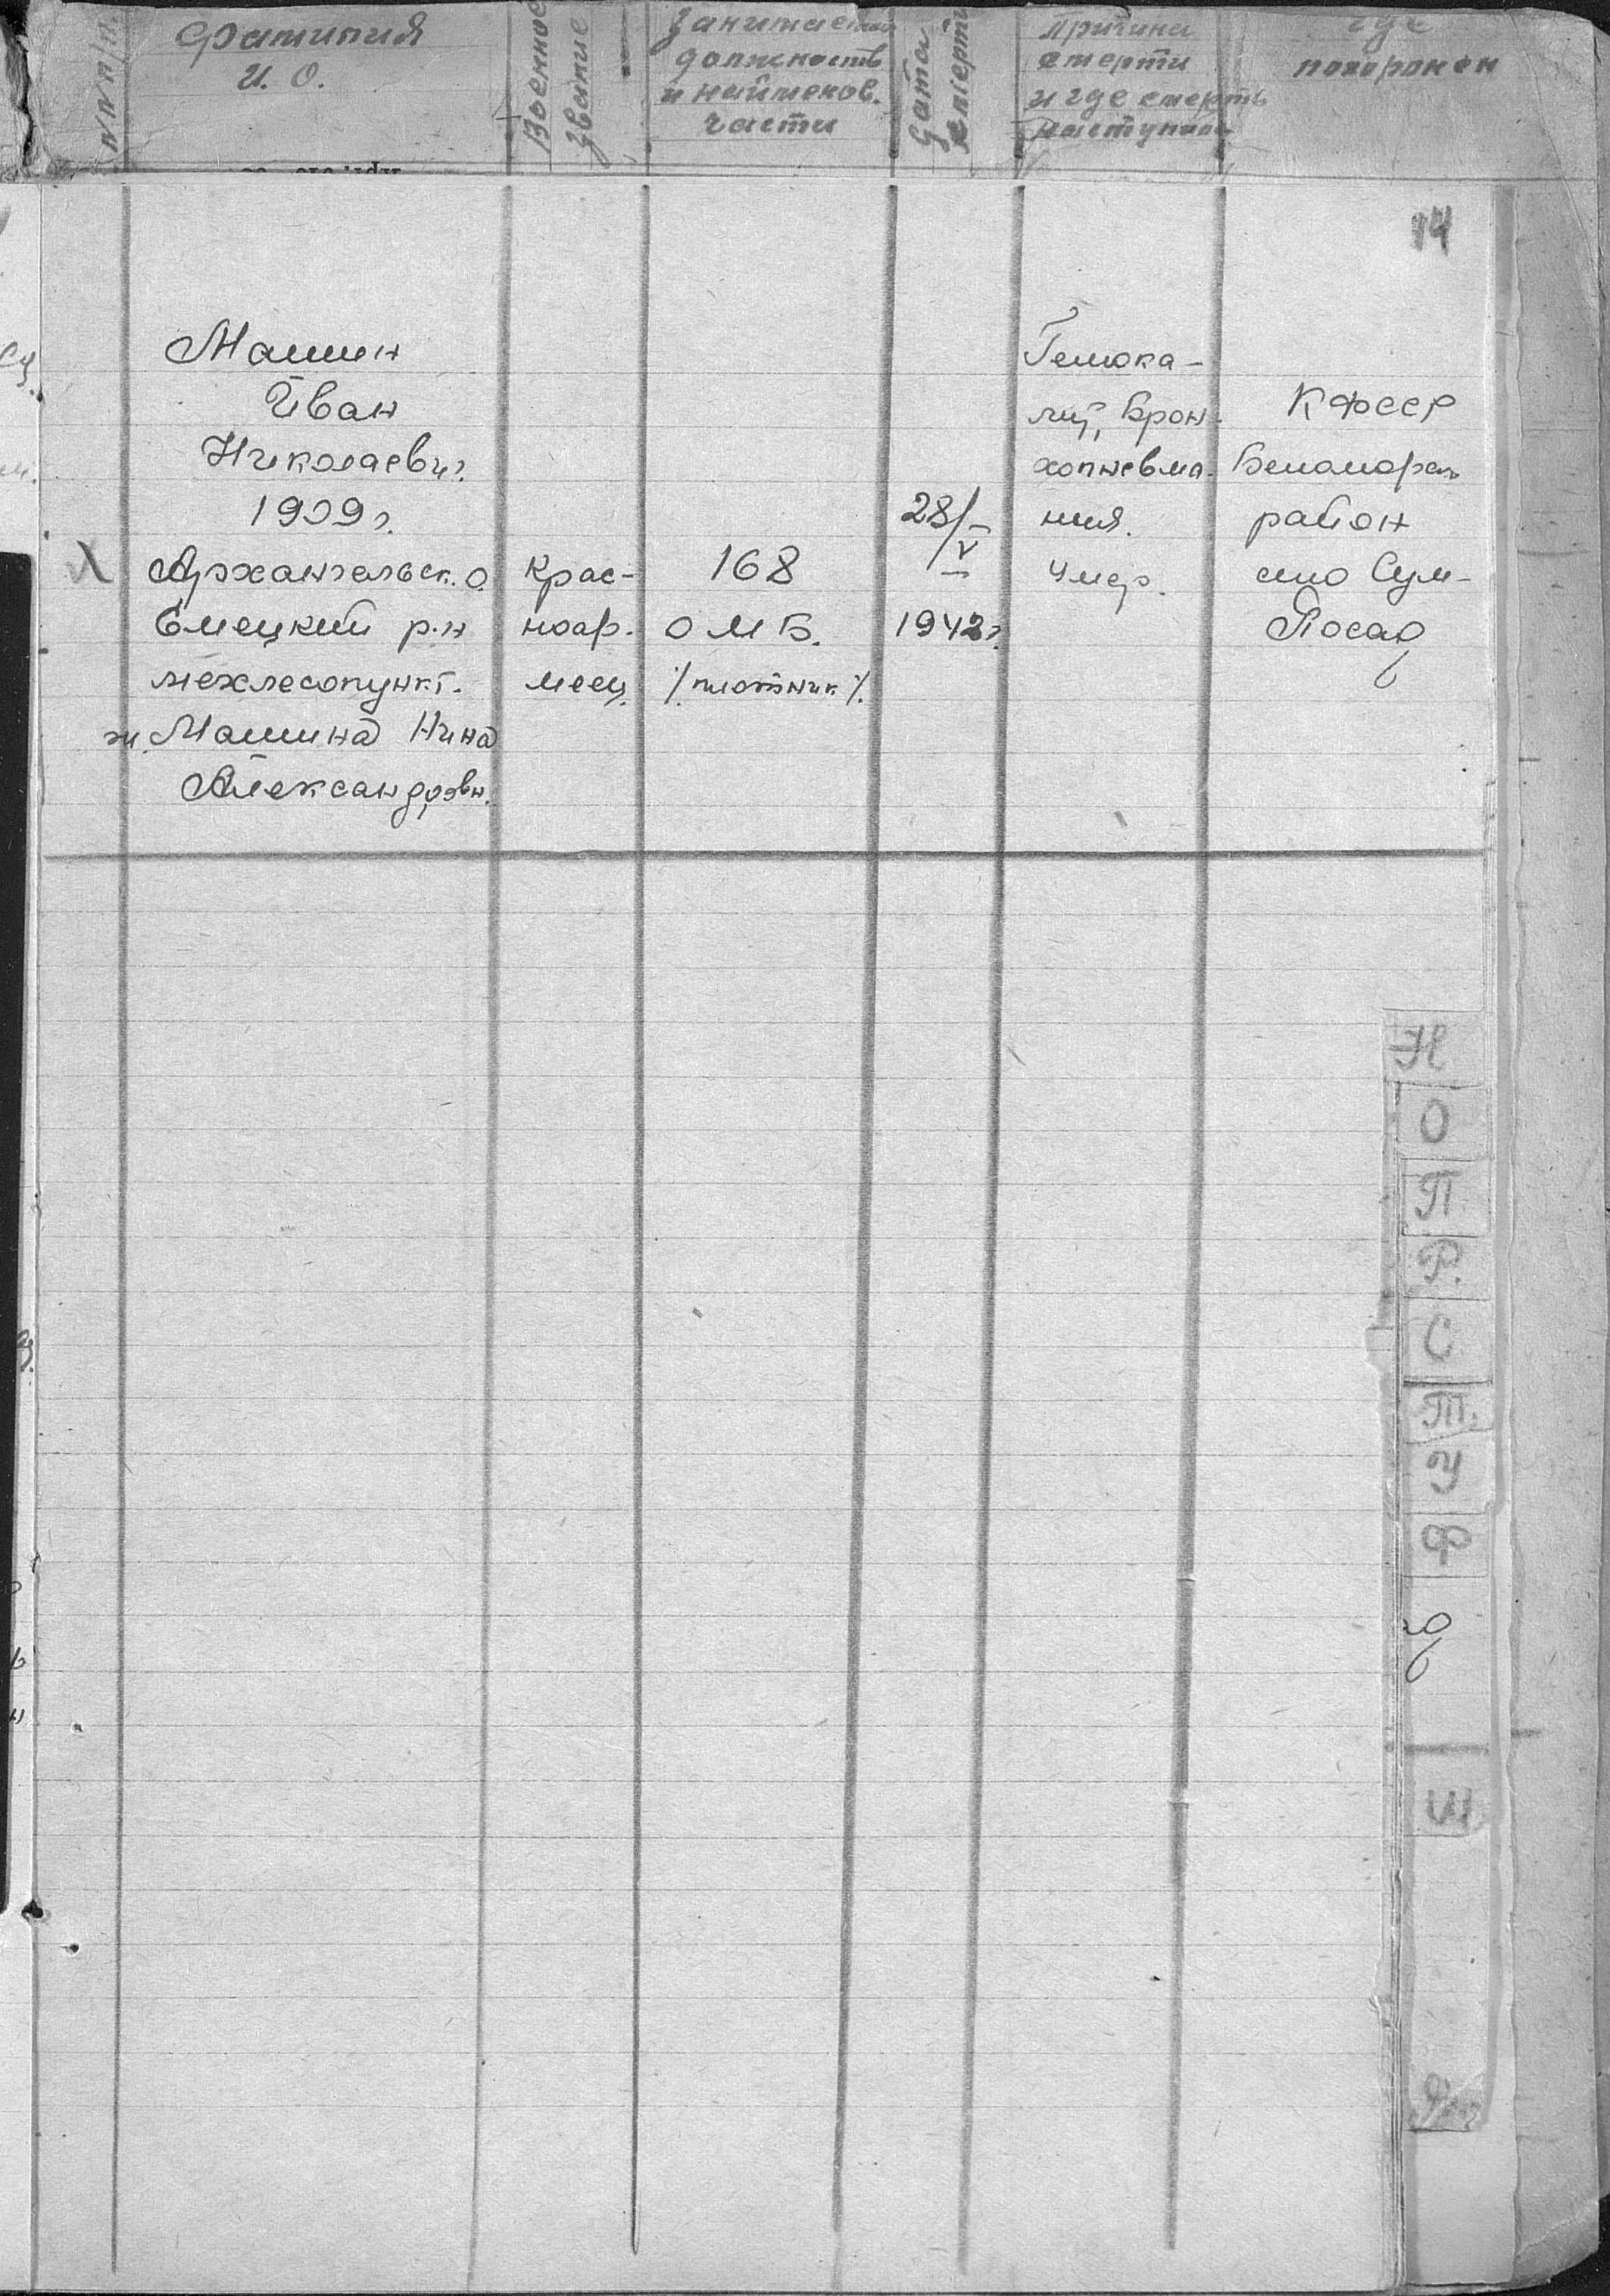 N/N п/п
Фамилия
И. О.
Военное
звание
Занимаемая
должность
и наименов.
части
Дата
смерти
Причина
смерти
и где смерть
наступила
где
похоронен
14
Машин
Иван
Николаевич
1909 г.
Архангельск. о.
Емецкий р-н
мехлесопункт.
ж. Машина Нина
Александровн.
Крас-
ноар-
меец
168
О М Б.
/плотник/.
28/V
1942 г.
Гемока-
лит, Брон-
хопневмо-
ния.
Умер.
КФССР
Беломорск
район
село Сум-
Посад
Н
О
П
Р.
С
Т.
У
Ф
Ш